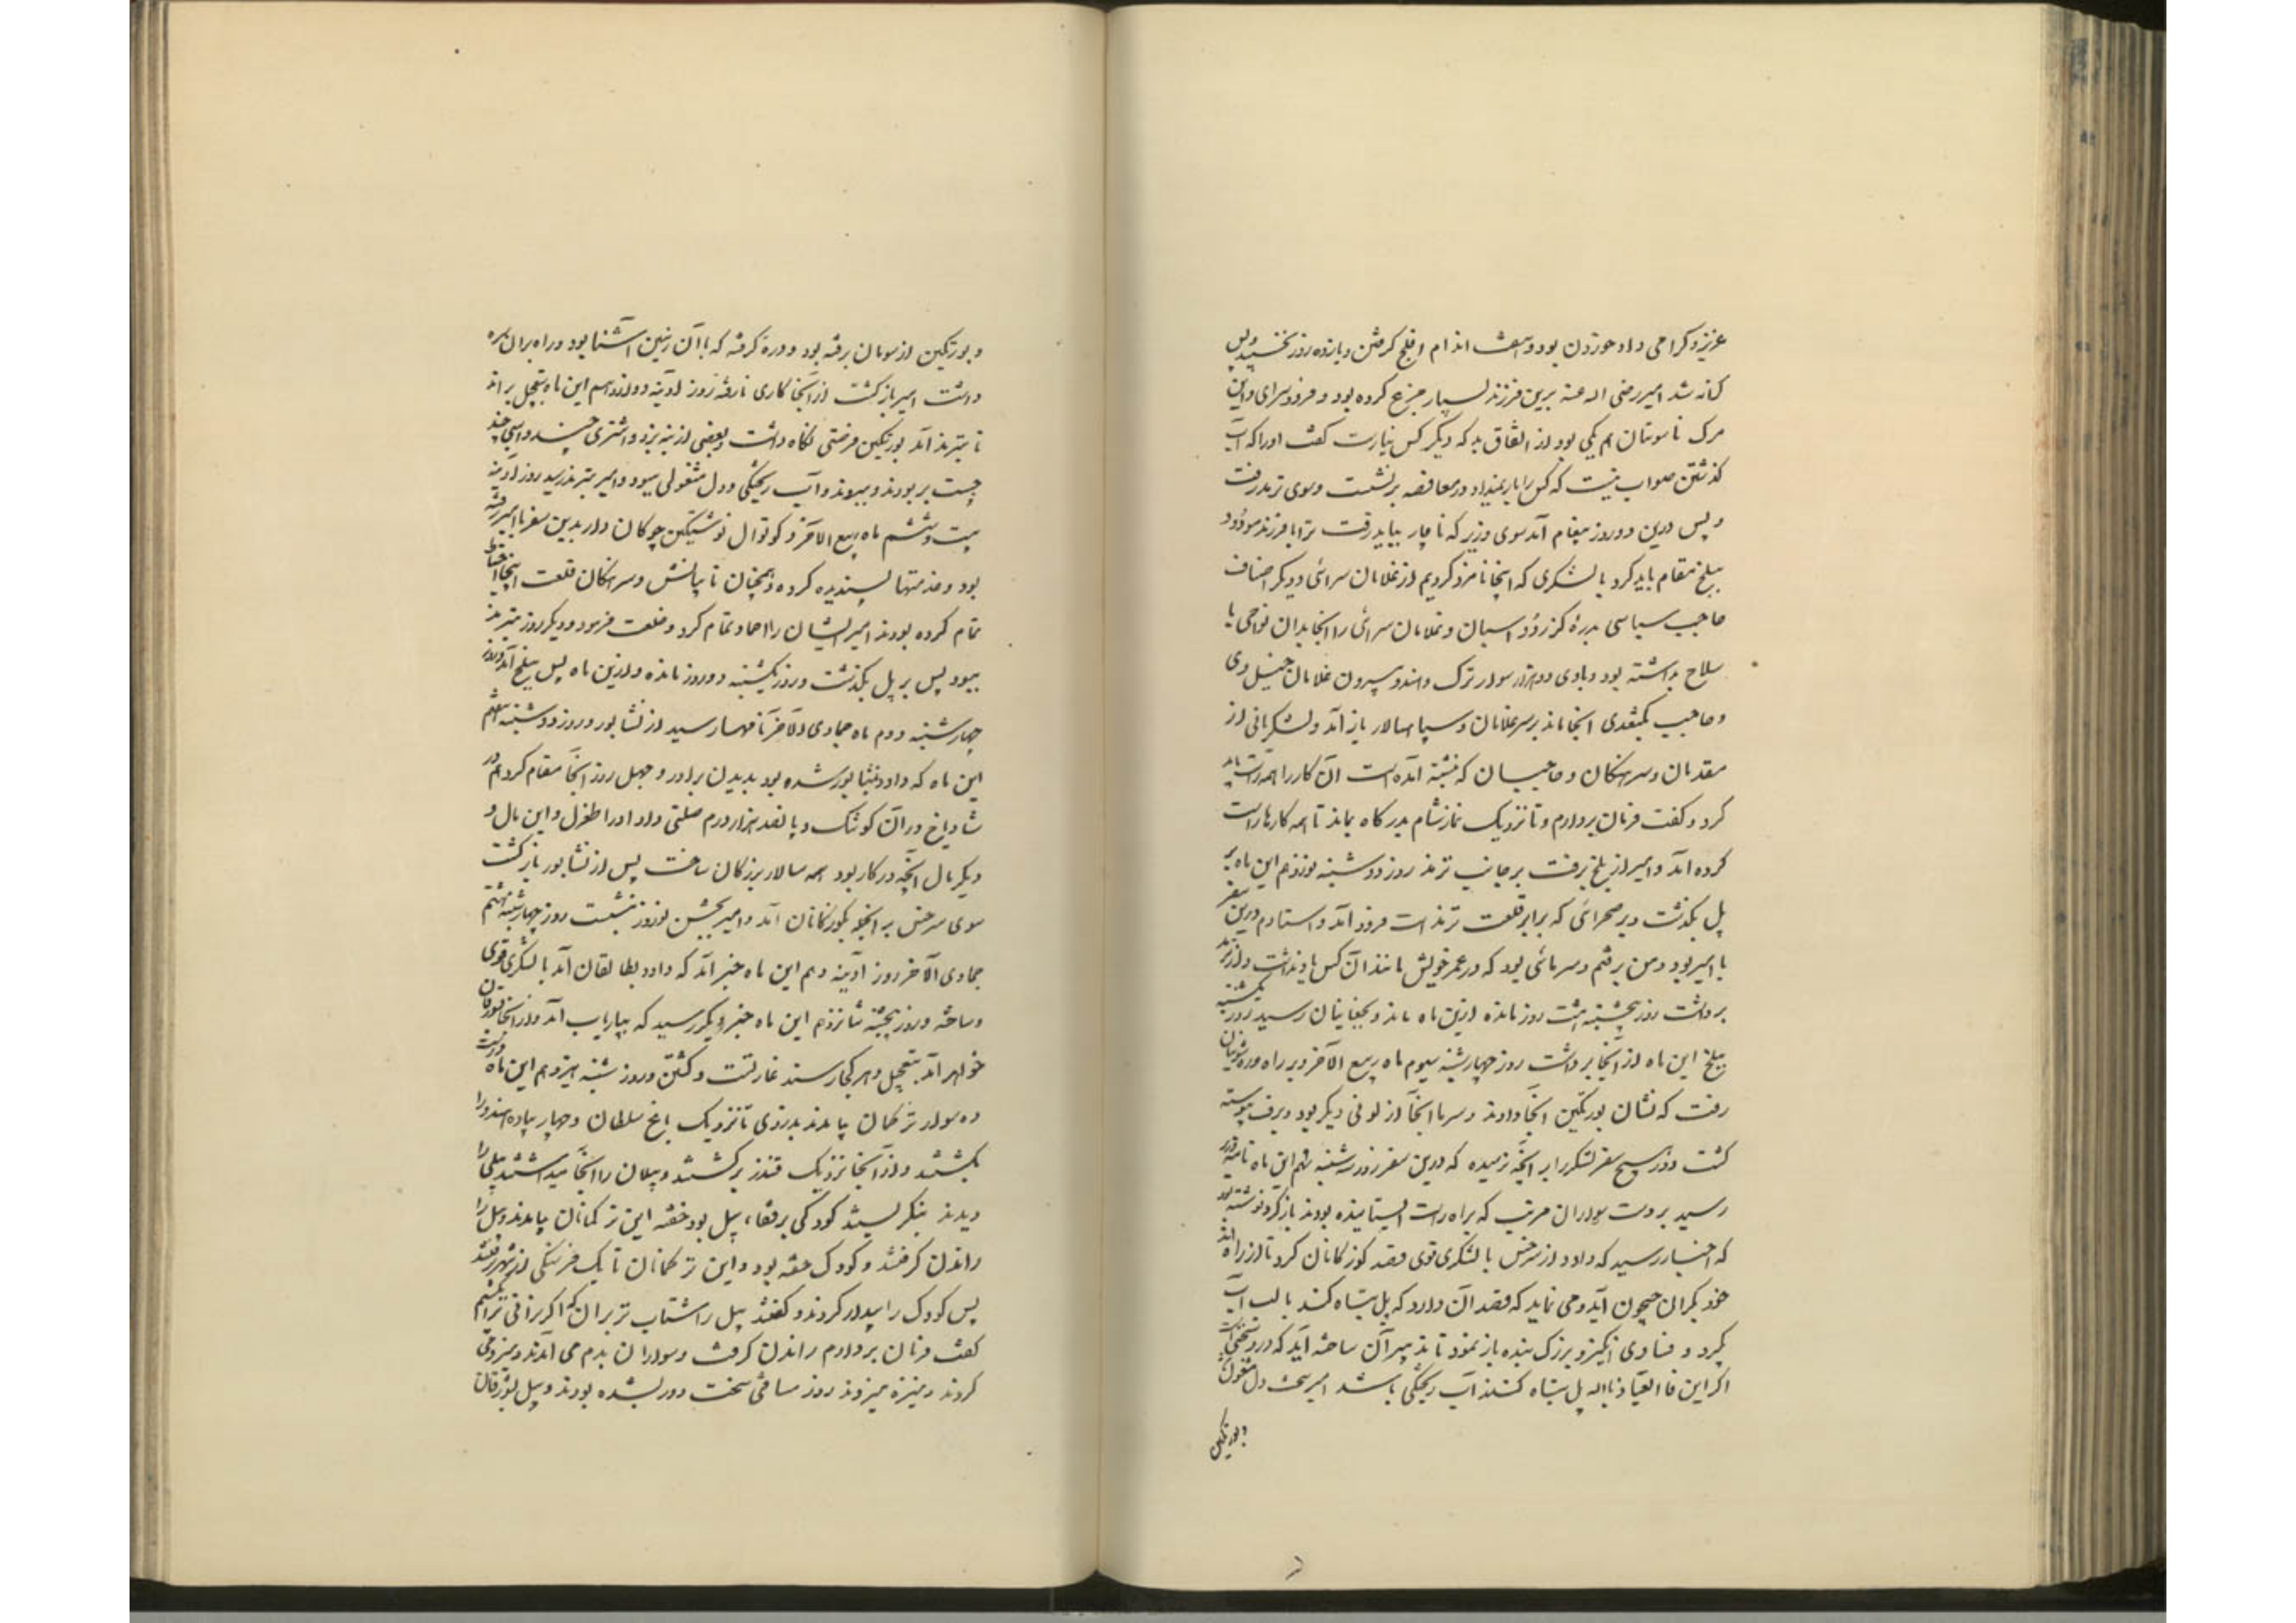 عزیز و کرامی داد خوردن بود و هفت اندام افلج کرفتن و یازده روز نخسپید و پس
کرانه شد امیر رضی الله عنه برین فرزند بسیار جزع کرده بود و فرود سرای و این
مرک ناسوتان هم یکی بود از اتفاق بد که دیکر کس نیارست کفت او را که آب
کذشتن صواب نیست که کس را بار نمیداد و مغافصه برنشست و سوی ترمذ رفت
و پس درین دو روز پیغام آمد سوی وزیر که ناچار بباید رفت ترا با فرزند مودود
ببلخ مقام باید کرد با لشکری که اینجا نامزد کردیم از غلامان سرائی و دیکر اصناف
حاجب سباسی بدره کز رود اسبان و غلامان سرائی را آنجا بدان نواحی با
سلاح بداشته بود و با وی دو هزار سوار ترک و هندو بیرون غلامان خیل وی
و حاجب بکتغدی آنجا ماند بر سر غلامان و سپاهسالار باز آمد و لشکریانی از
مقدمان و سرهنکان و حاجبیان که نبشته آمده است آن کار را همه راست باید
کرد و کفت فرمان بردارم و تا نزدیک نماز شام بدرکاه بماند تا همه کارها راست
کرده آمد و امیر از بلخ برفت بر جانب ترمذ روز دوشنبه نوزدهم این ماه بر
پل بکذشت و بر صحرائی که برابر قلعت ترمذ است فرود آمد و استادم درین سفر
با امیر بود و من برفتم و سرمائی بود که در عمر خویش مانند آن کس یاد نداشت و از ترمذ
برداشت روز پنجشنبه هشت روز مانده ازین ماه ماند و بچغانیان رسید روز یکشنبه
سلخ این ماه از آنجا برداشت روز چهارشنبه سیوم ماه ربیع الآخر و بر راه دره شومان
رفت که نشان بورتکین آنجا دادند و سرما آنجا از لونی دیکر بود و برف پیوسته
کشت و در هیچ سفر لشکر را این رنج نرسیده که درین سفر روز سه‌شنبه نهم این ماه نامه وزیر
رسید بر دست سواران مرتب که براه راست ایستانیده بودند یاد کرده نوشته بود
که اخبار رسید که داود از سرخس با لشکری قوی قصد کوزکانان کرد تا از راه اندخود
خود بکران جیحون آید و می نماید که قصد آن دارد که پل تباه کند تا لب آب
بکیرد و فسادی انکیزد بزرک بنده باز نمود تا تدبیر آن ساخته آید که در سختی است
اکر این فا العیاذ بالله پل تباه کنند آب ریختکی باشد امیر سخت دل مشغول شد
و بورتکین
و بورتکین از سومان برفته بود و دره کرفته که با آن زمین آشنا بود و راه بران سره
داشت امیر بازکشت از آنجا کاری نارفته روز آدینه دوازدهم این ماه و بتعجیل براند
تا بترمذ آمد بورتکین فرصتی نکاه داشت و بعضی از بنه بزد و اشتری چند و اسبی چند
جست بربودند و ببردند و آب ریختکی و دل مشغولی ببود و امیر بترمذ رسید روز آدینه
بیست و ششم ماه ربیع الآخر و کوتوال نوشتکین چوکان دار بدین سفر با امیر رفته
بود و خدمتها پسندیده کرده و همچنان نایبانش و سرهنکان قلعت اینجا احتیاط
تمام کرده بودند امیر ایشان را احماد تمام کرد و خلعت فرمود و دیکر روز بترمذ
ببود پس بر پل بکذشت و روز یکشنبه دو روز مانده از این ماه پس ببلخ آمد روز
چهارشنبه دوم ماه جمادی الآخر نامها رسید از نشابور و روز دوشنبه هفتم
این ماه که داود بنشابور شده بود بدیدن برادر و چهل روز آنجا مقام کرد هم در
شادیاخ در آن کوشک و پانصد هزار درم صلتی داد او را طغرل و این مال و
دیکر مال آنچه در کار بود همه سالار بوزکان ساخت پس از نشابور بازکشت
سوی سرخس بر آنجو بکوزکانان آمد و امیر بجشن نوروز بنشست روز چهارشنبه هشتم
جمادی الآخر روز آدینه دهم این ماه خبر آمد که داود بطالقان آمد با لشکری قوی
و ساخته و روز پنجشنبه شانزدهم این ماه خبر دیکر رسید که بپاریاب آمد و از آنجا بشبورقان
خواهد آمد بتعجیل و هر کجا رسند غارتست و کشتن و روز شنبه هیزدهم این ماه
ده سوار ترکمان بیامدند بدزدی تا نزدیک باغ سلطان و چهار پیاده هندو را
بکشتند و از آنجا نزدیک قندز برکشتند و پیلان را آنجا میداشتند پیلی را
دیدند بنکریستند کودکی بر قفاء پیل بود خفته این ترکمانان بیامدند و پیل را
راندن کرفتند و کودک خفته بود و این ترکمانان تا یک فرسنکی از شهر برفتند
پس کودک را بیدار کردند و کفتند پیل را شتاب تر بران که اکر نرانی ترا بکشیم
کفت فرمان بردارم راندن کرفت و سواران بدم می آمدند و نیرو می
کردند و نیزه میزدند روز مسافتی سخت دور بشده بودند و پیل بشبورقان